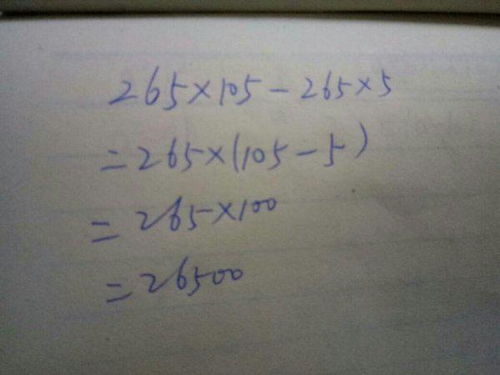 265×105-265×5
=265×(105-5)
=265×100
=26500